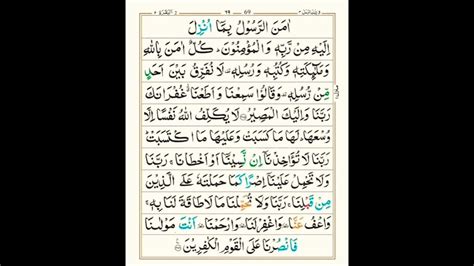 69 ٦٩
اٰمَنَ الرَّسُوْلُ بِمَاۤ اُنْزِلَ
اِلَيْهِ مِنْ رَّبِّهٖ وَ الْمُؤْمِنُوْنَؕ كُلٌّ اٰمَنَ بِاللّٰهِ
وَ مَلٰٓئِكَتِهٖ وَ كُتُبِهٖ وَ رُسُلِهٖ۫ لَا نُفَرِّقُ بَيْنَ اَحَدٍ
مِّنْ رُّسُلِهٖ۫ وَ قَالُوْا سَمِعْنَا وَ اَطَعْنَا٘ غُفْرَانَكَ
رَبَّنَا وَ اِلَيْكَ الْمَصِيْرُ لَا يُكَلِّفُ اللّٰهُ نَفْسًا اِلَّا
وُسْعَهَاؕ لَهَا مَا كَسَبَتْ وَ عَلَيْهَا مَا اكْتَسَبَتْؕ
رَبَّنَا لَا تُؤَاخِذْنَاۤ اِنْ نَّسِيْنَاۤ اَوْ اَخْطَاْنَاۚ رَبَّنَا
وَ لَا تَحْمِلْ عَلَيْنَاۤ اِصْرًا كَمَا حَمَلْتَهٗ عَلَى الَّذِيْنَ
مِنْ قَبْلِنَاۚ رَبَّنَا وَ لَا تُحَمِّلْنَا مَا لَا طَاقَةَ لَنَا بِهٖۚ
وَ اعْفُ عَنَّاٙ وَ اغْفِرْ لَنَاٙ وَ ارْحَمْنَاٙ اَنْتَ مَوْلٰىنَا
فَانْصُرْنَا عَلَى الْقَوْمِ الْكٰفِرِيْنَ